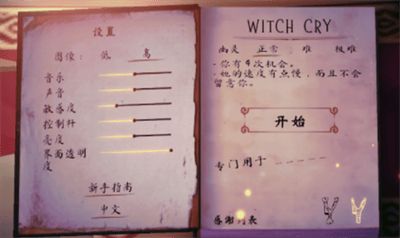 设置
图像: 低 高
音乐
声音
敏感度
控制杆
亮度
界面透明
度
新手指南
中文
WITCH CRY
幽灵 正常 难 极难
- 你有4次机会。
- 她的速度有点慢, 而且不会
留意你。
开始
专门用于
感谢列表